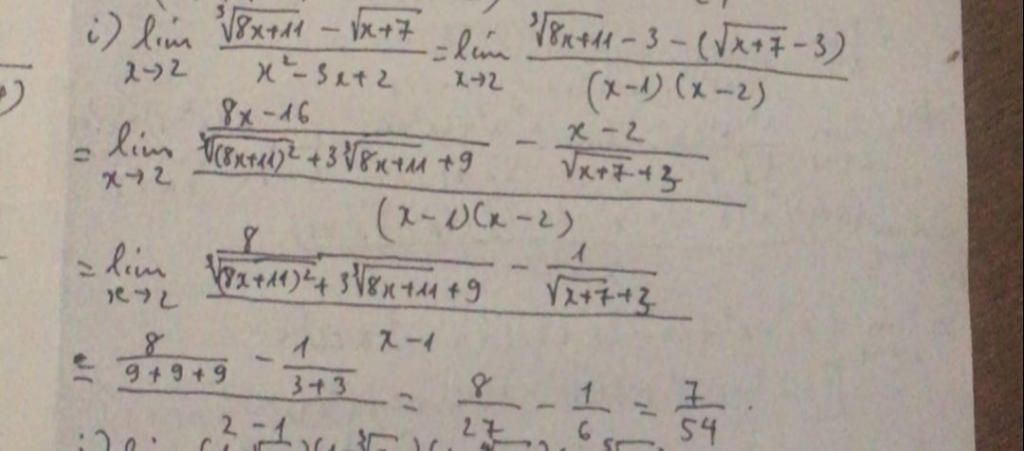 i) lim x→2 (∛(8x+11) − √(x+7)) / (x² − 3x + 2) = lim x→2 (∛(8x+11) − 3 − (√(x+7) − 3)) / ((x−1)(x−2))
= lim x→2 ((8x−16) / (∛(8x+11)² + 3∛(8x+11) + 9) − (x−2) / (√(x+7) + 3)) / ((x−1)(x−2))
= lim x→2 (8 / (∛(8x+11)² + 3∛(8x+11) + 9) − 1 / (√(x+7) + 3)) / (x−1)
= (8 / (9+9+9) − 1 / (3+3)) / (2−1) = 8/27 − 1/6 = 7/54.